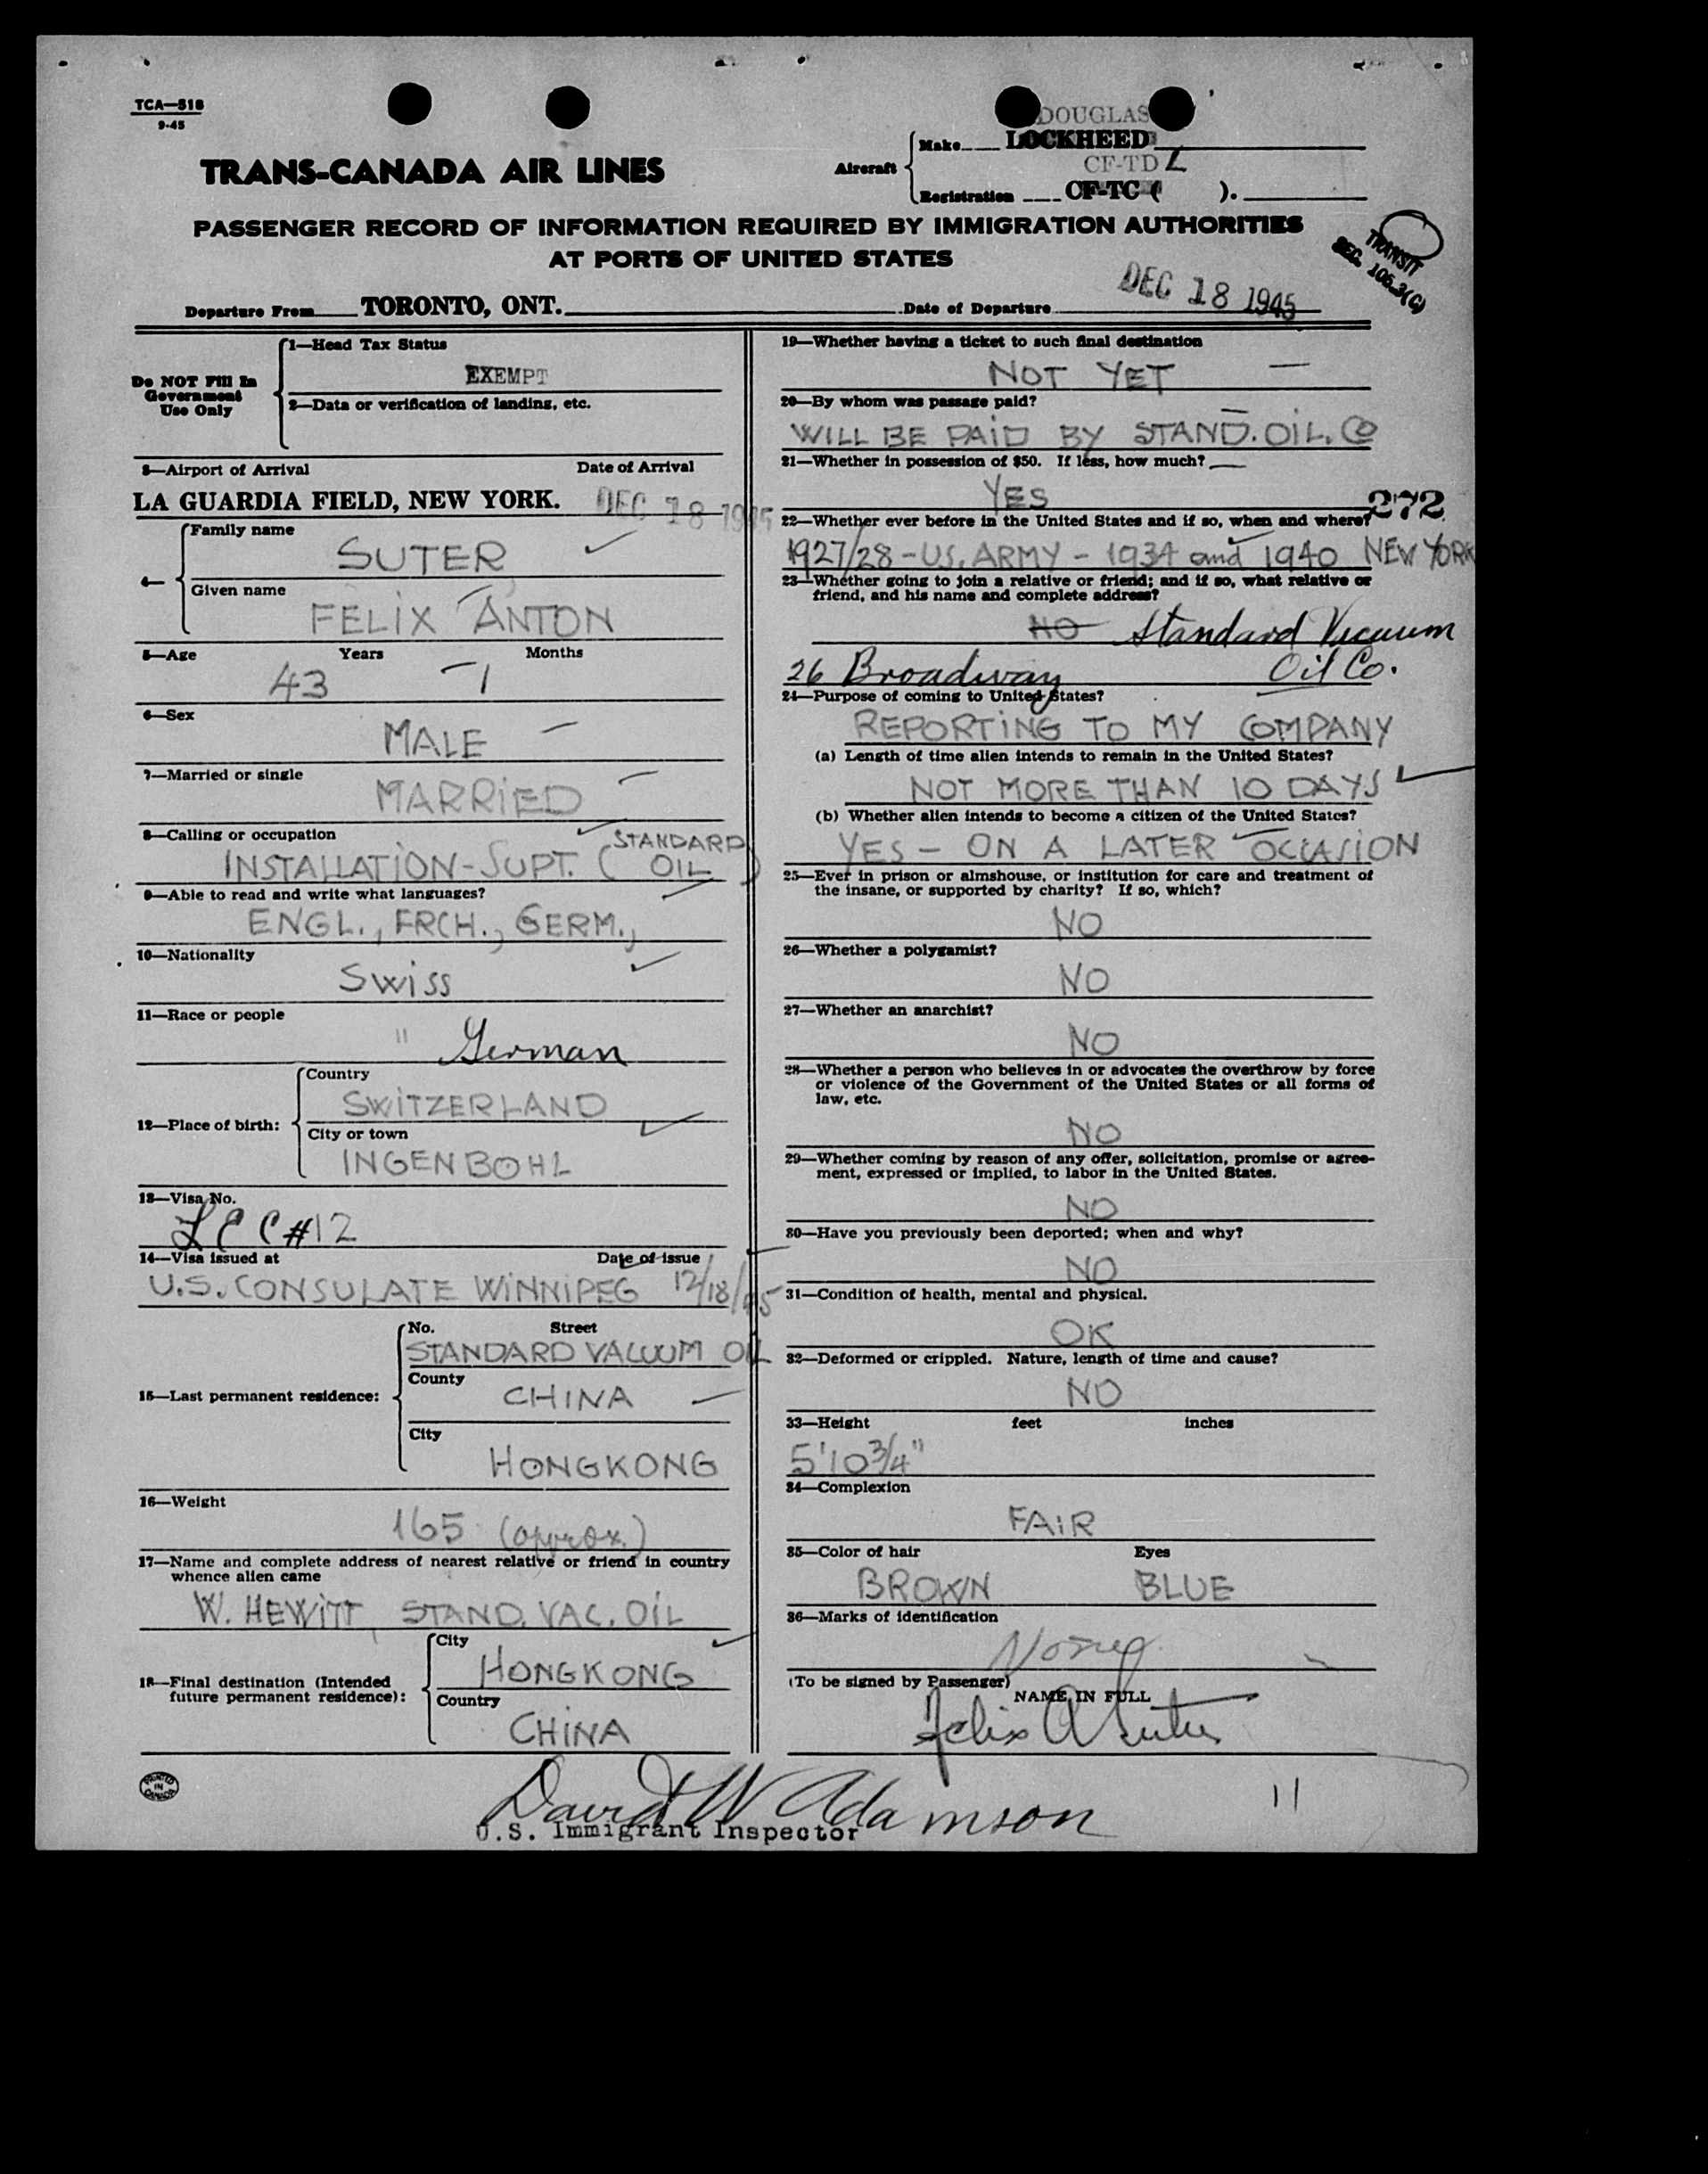 TCA—518
9-45
TRANS-CANADA AIR LINES
DOUGLAS
Aircraft
Make LOCKHEED
CF-TD L
Registration CF-TC ( ).
PASSENGER RECORD OF INFORMATION REQUIRED BY IMMIGRATION AUTHORITIES
AT PORTS OF UNITED STATES
TRANSIT
SEC. 105.3(C)
Departure From TORONTO, ONT. Date of Departure DEC 18 1945
Do NOT Fill In
Government
Use Only
1—Head Tax Status
EXEMPT
2—Data or verification of landing, etc.
3—Airport of Arrival Date of Arrival
LA GUARDIA FIELD, NEW YORK. DEC 18 1945
4—
Family name
SUTER
Given name
FELIX ANTON
5—Age Years Months
43 1
6—Sex
MALE
7—Married or single
MARRIED
8—Calling or occupation
INSTALLATION-SUPT. (STANDARD OIL)
9—Able to read and write what languages?
ENGL., FRCH., GERM.,
10—Nationality
SWISS
11—Race or people
" German
12—Place of birth:
Country
SWITZERLAND
City or town
INGENBOHL
13—Visa No.
LEC #12
14—Visa issued at Date of issue
U.S. CONSULATE WINNIPEG 12/18/45
15—Last permanent residence:
No. Street
STANDARD VACUUM OIL
County
CHINA
City
HONGKONG
16—Weight
165 (aprox.)
17—Name and complete address of nearest relative or friend in country
whence alien came
W. HEWITT, STAND. VAC. OIL
18—Final destination (Intended
future permanent residence):
City
HONGKONG
Country
CHINA
19—Whether having a ticket to such final destination
NOT YET —
20—By whom was passage paid?
WILL BE PAID BY STAND. OIL. CO
21—Whether in possession of $50. If less, how much?
YES
272
22—Whether ever before in the United States and if so, when and where?
1927/28 - US. ARMY - 1934 and 1940 NEW YORK
23—Whether going to join a relative or friend; and if so, what relative or
friend, and his name and complete address?
NO Standard Vacuum
26 Broadway Oil Co.
24—Purpose of coming to United States?
REPORTING TO MY COMPANY
(a) Length of time alien intends to remain in the United States?
NOT MORE THAN 10 DAYS
(b) Whether alien intends to become a citizen of the United States?
YES - ON A LATER OCCASION
25—Ever in prison or almshouse, or institution for care and treatment of
the insane, or supported by charity? If so, which?
NO
26—Whether a polygamist?
NO
27—Whether an anarchist?
NO
28—Whether a person who believes in or advocates the overthrow by force
or violence of the Government of the United States or all forms of
law, etc.
NO
29—Whether coming by reason of any offer, solicitation, promise or agree-
ment, expressed or implied, to labor in the United States.
NO
30—Have you previously been deported; when and why?
NO
31—Condition of health, mental and physical.
OK
32—Deformed or crippled. Nature, length of time and cause?
NO
33—Height feet inches
5'10 3/4"
34—Complexion
FAIR
35—Color of hair Eyes
BROWN BLUE
36—Marks of identification
None
(To be signed by Passenger)
NAME IN FULL
Felix A Suter
PRINTED
IN
CANADA
David W Adamson
U.S. Immigrant Inspector
11